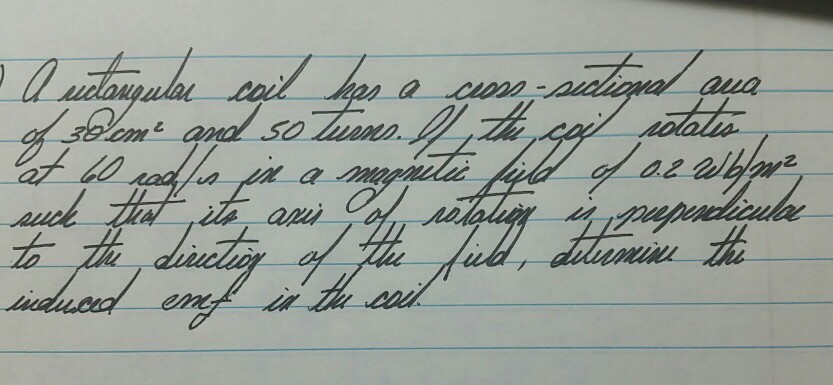 ) A rectangular coil has a cross-sectional area
of 30 cm² and 50 turns. If the coil rotates
at 60 rad/s in a magnetic field of 0.2 Wb/m²
such that its axis of rotation is perpendicular
to the direction of the field, determine the
induced emf in the coil.